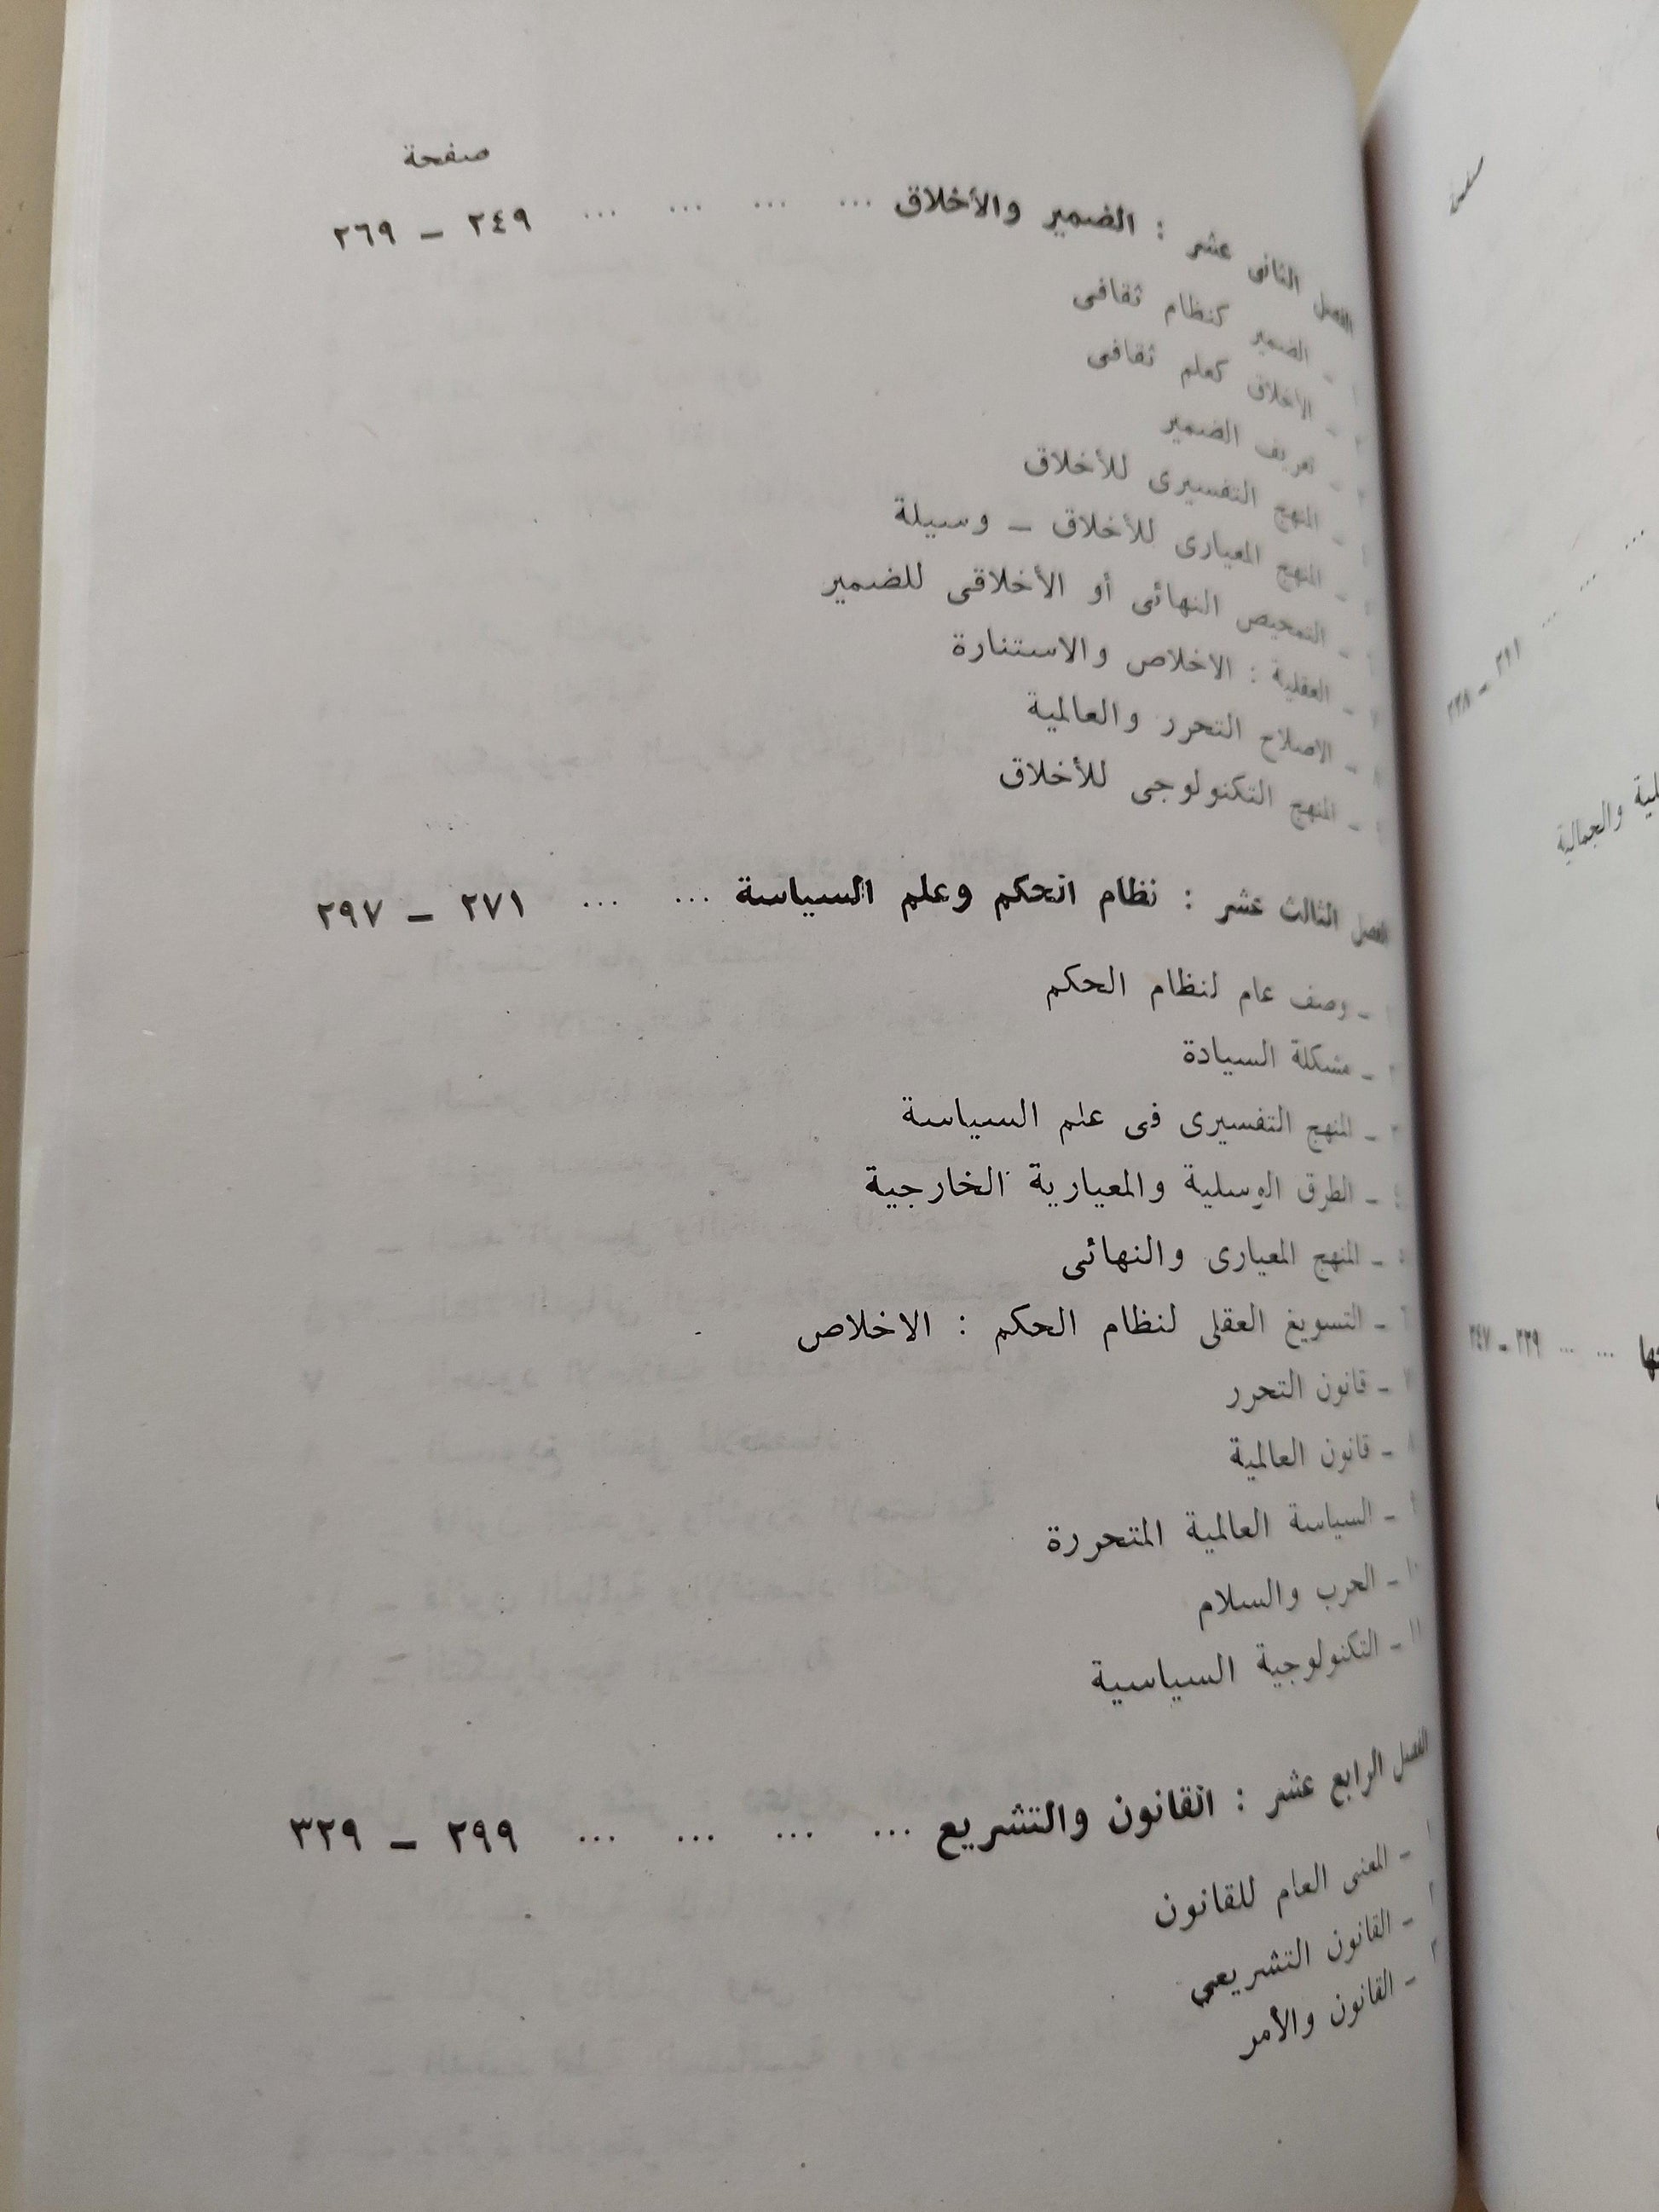 صفحة
الفصل الثانى عشر : الضمير والأخلاق ... ... ... ... ٢٤٩ – ٢٦٩
١ – الضمير كنظام ثقافى
٢ – الأخلاق كعلم ثقافى
٣ – تعريف الضمير
٤ – المنهج التفسيرى للأخلاق
٥ – المنهج المعيارى للأخلاق – وسيلة
٦ – التمحيص النهائى أو الأخلاقى للضمير
٧ – العقلية : الاخلاص والاستنارة
٨ – الاصلاح التحرر والعالمية
٩ – المنهج التكنولوجى للأخلاق
الفصل الثالث عشر : نظام الحكم وعلم السياسة ... ... ٢٧١ – ٢٩٧
١ – وصف عام لنظام الحكم
٢ – مشكلة السيادة
٣ – المنهج التفسيرى فى علم السياسة
٤ – الطرق الوسلية والمعيارية الخارجية
٥ – المنهج المعيارى والنهائى
٦ – التسويغ العقلى لنظام الحكم : الاخلاص
٧ – قانون التحرر
٨ – قانون العالمية
٩ – السياسة العالمية المتحررة
١٠ – الحرب والسلام
١١ – التكنولوجية السياسية
الفصل الرابع عشر : القانون والتشريع ... ... ... ... ٢٩٩ – ٣٢٩
١ – المعنى العام للقانون
٢ – القانون التشريعى
٣ – القانون والأمر
... ... ... ٢١١ – ٢٣٨
والجمالية
... ... ٢٣٩ – ٢٤٧